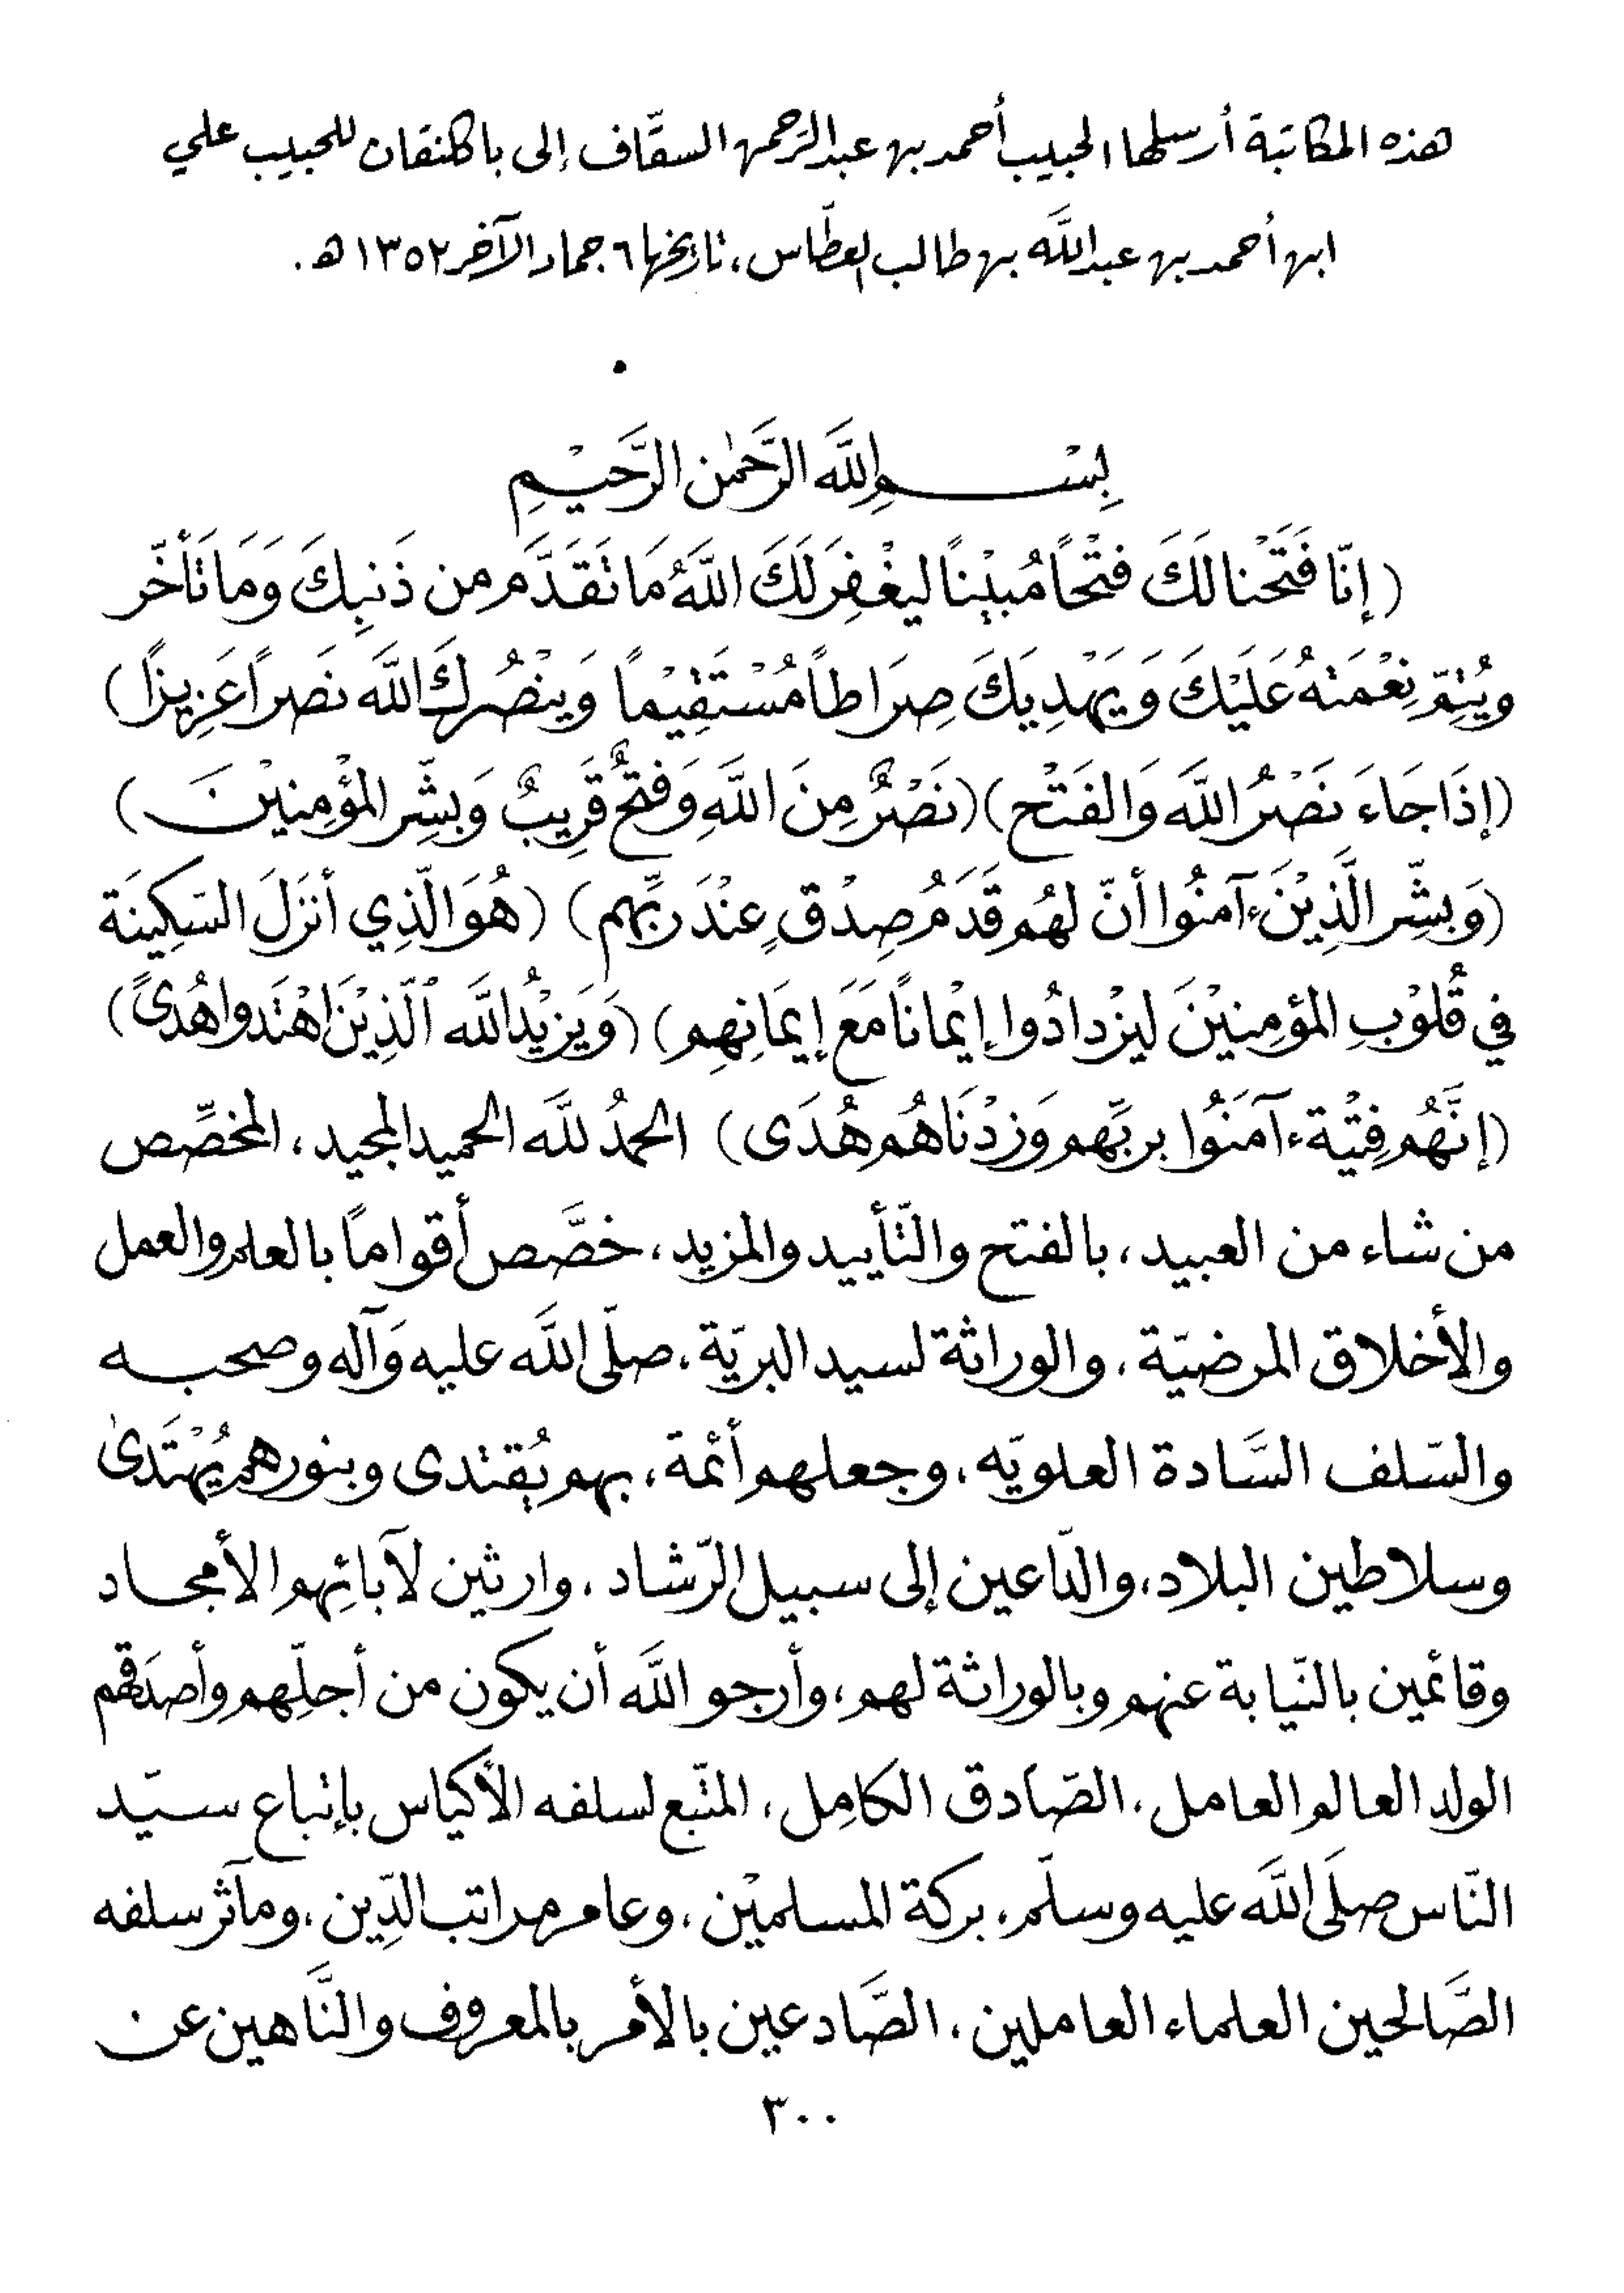 هذه المكاتبة أرسلها الحبيب أحمد بن عبد الرَّحمن السقّاف إلى باكلنقان للحبيب علي
ابن أحمد بن عبد اللَّه بن طالب العطّاس، تاريخها ٦ جماد الآخر ١٣٥٢ هـ.
بِسْـــمِ اللَّهِ الرَّحَمٰنِ الرَّحَيْمِ
(إنّا فَتَحْنا لَكَ فتْحًا مُبيْنًا ليغْفِرَ لَكَ اللَّهُ مَا تَقَدَّم من ذَنبِكَ وَمَا تَأخّر
ويُتِمّ نِعْمَتهُ عَلَيْكَ وَيَهْدِيَكَ صِرَاطاً مُسْتَقِيْماً وَينْصُركَ اللَّه نَصْراً عَزِيزًا)
(إذَا جَاءَ نَصْرُ اللَّه وَالفَتْح) (نَصْرٌ مِنَ اللَّهِ وَفتحٌ قَرِيبٌ وَبشِّر المؤْمِنيْنَ)
(وَبشِّر الَّذِيْنَ ءآمنُوا أنّ لهُم قَدَمُ صِدْقٍ عِنْدَ ربِّهم) (هُوَ الّذِي أنزَلَ السَكِينَة
في قُلوْبِ المؤمِنيْنَ ليزْدادُوا إيْمانًا مَعَ إيمَانِهِم) (وَيَزيْدُ اللَّه الّذِيْنَ اهْتَدوا هُدىً)
(إنَّهُم فِتْيَة ءآمَنُوا بربِّهم وَزدْنَاهُم هُدَى) الحمدُ للَّه الحميد المجيد، المخصِّص
من شاء من العبيد، بالفتح والتّأييد والمزيد، خصَّص أقواماً بالعلم والعمل
والأخلاق المرضيّة، والوراثة لسيد البريّة، صلّى اللَّه عليه وَآله وصحبه
والسّلف السَّادة العلويّه، وجعلهم أئمة، بهم يُقتدى وبنورهم يُهْتَدىٰ
وسلاطين البلاد، والدّاعين إلى سبيل الرّشاد، وارثين لآبائِهم الأمجاد
وقائمين بالنّيابة عنهم وبالوراثة لهم، وأرجو اللَّه أن يكون من أجلّهم وأصدَقهم
الولد العالم العامل، الصّادق الكامِل، المتّبع لسلفه الأكياس بإتباع سيّد
النّاس صلَى اللَّه عليه وسلّم، بركة المسلميْن، وعامر مراتب الدِّين، ومآثر سلفه
الصَّالحين العلماء العاملين، الصَّادعين بالأمر بالمعروف والنَّاهين عن
٣٠٠